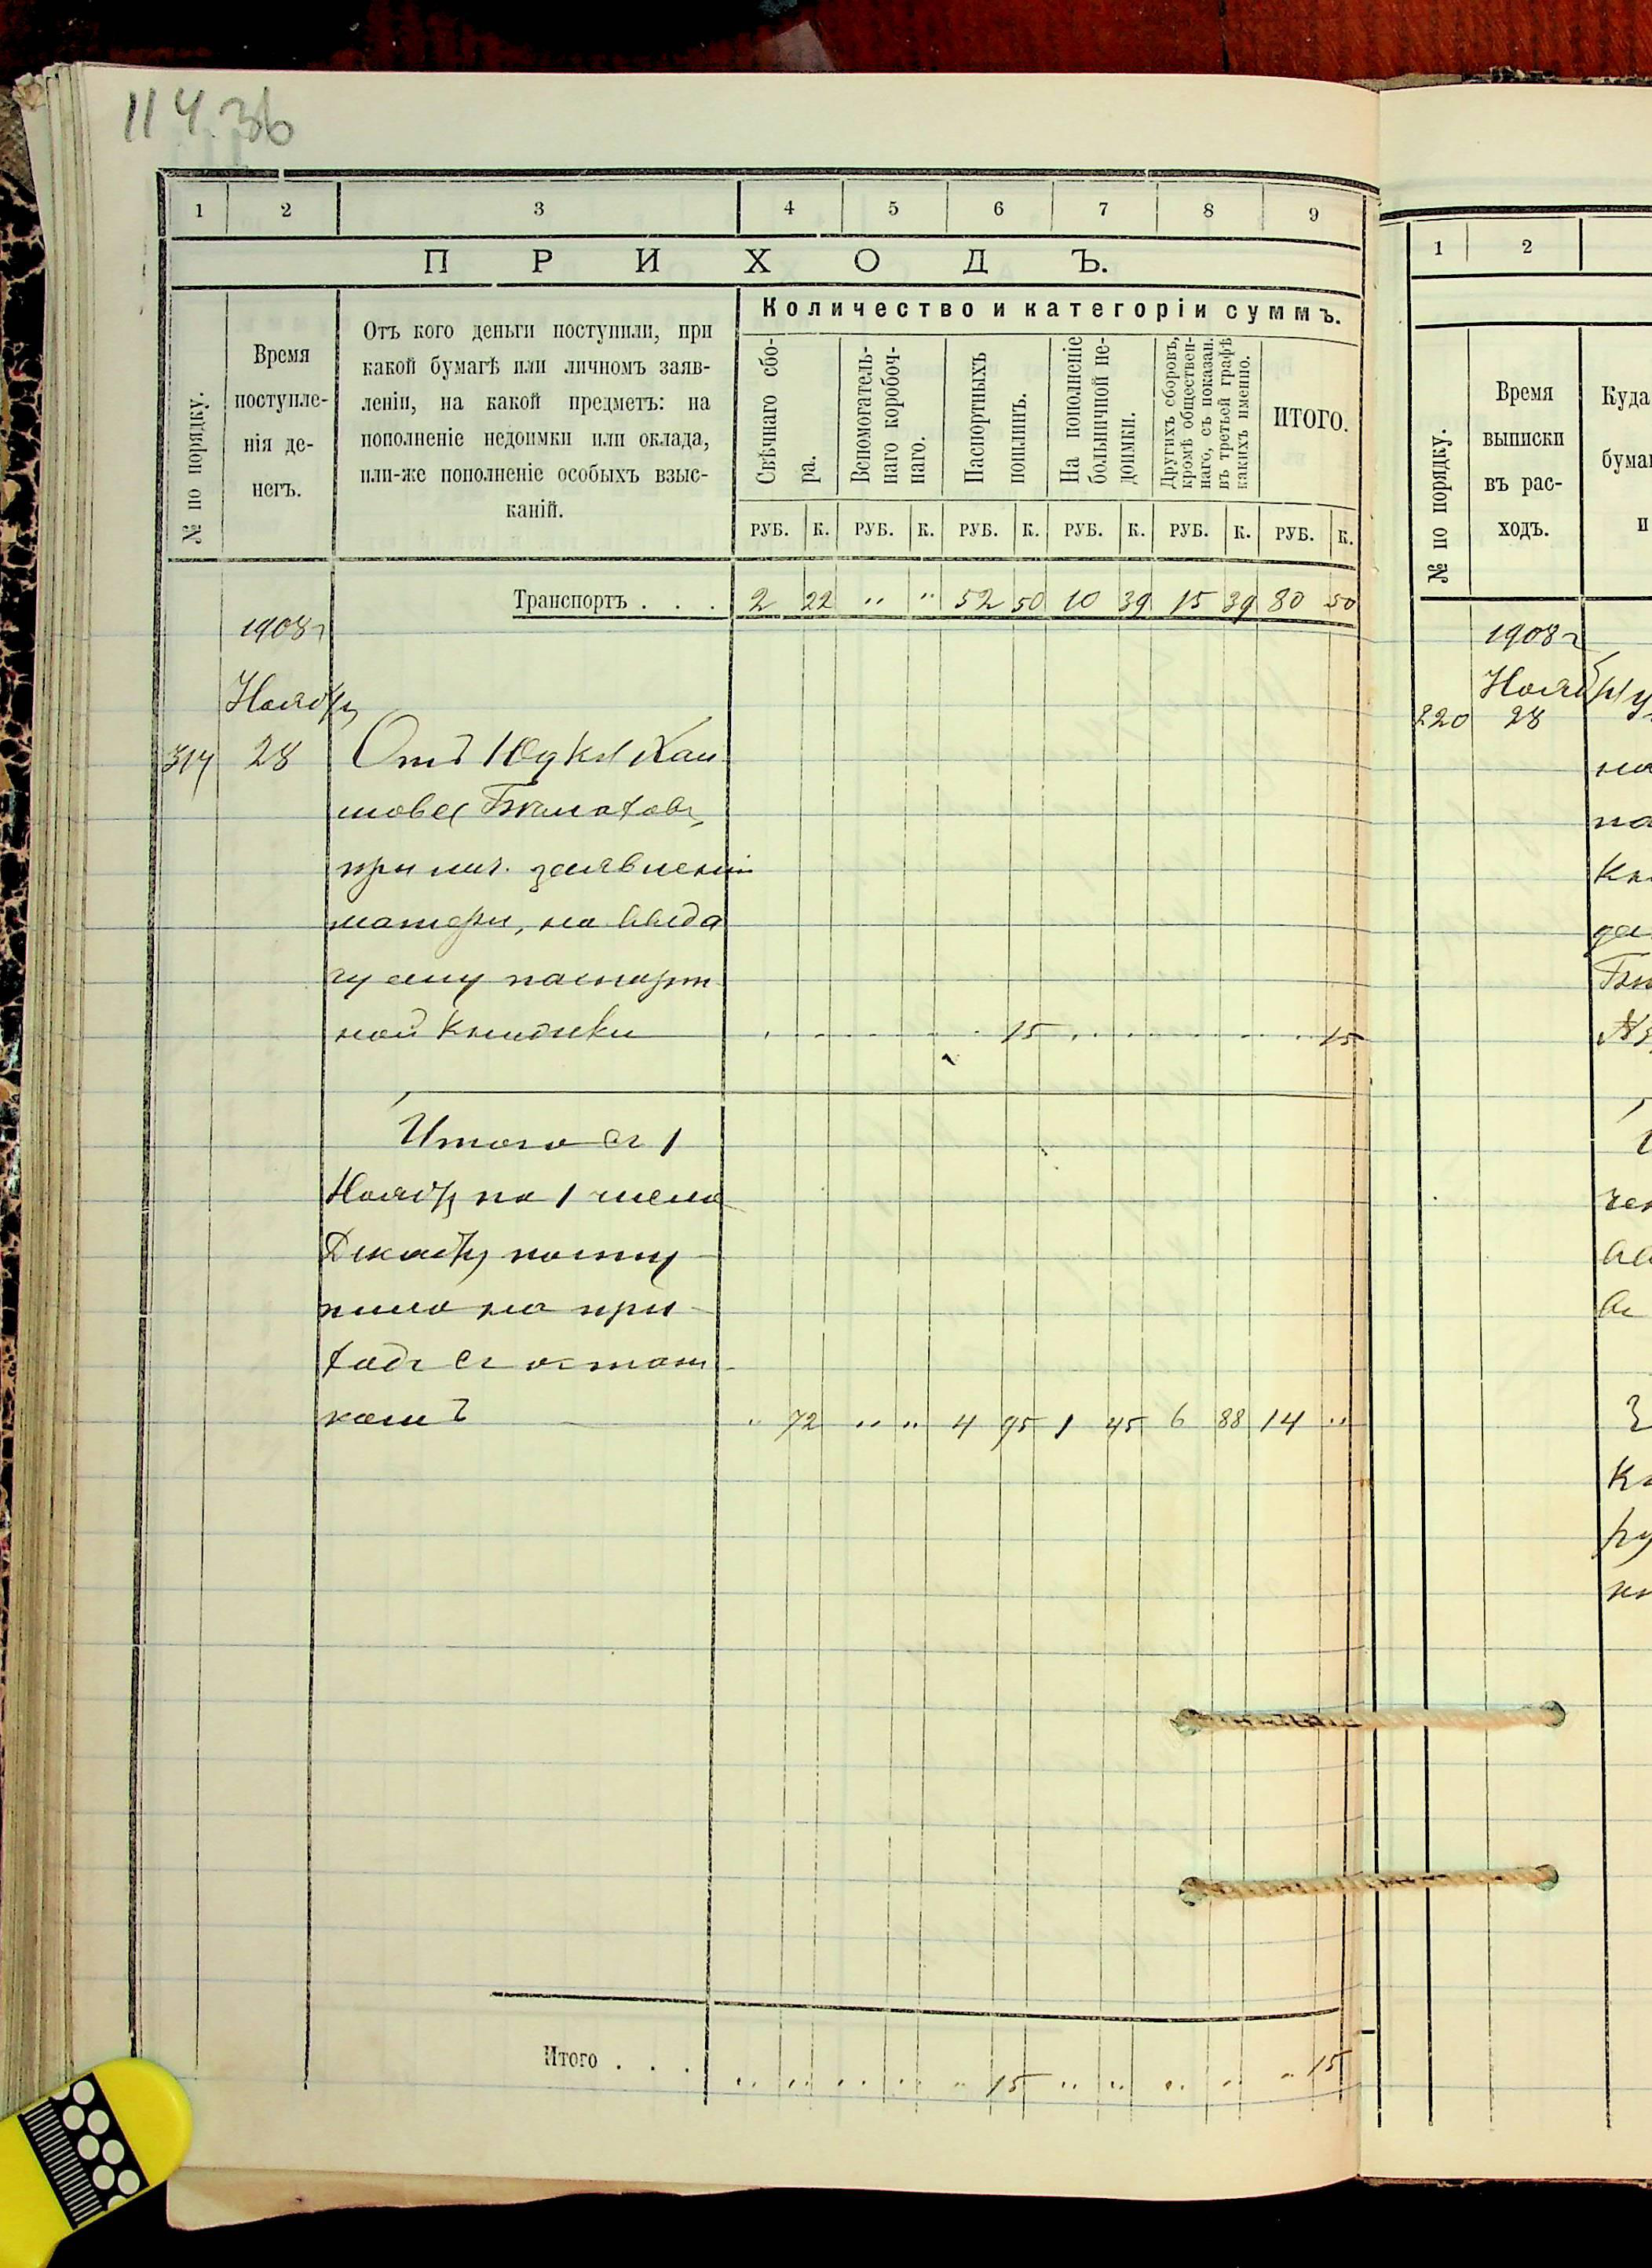 114.36
1 2 3 4 5 6 7 8 9
ПРИХОДЪ.
№ по порядку.
Время
поступле-
нія де-
негъ.
Отъ кого деньги поступили, при
какой бумагѣ или личномъ заяв-
леніи, на какой предметъ: на
пополненіе недоимки или оклада,
или-же пополненіе особыхъ взыс-
каній.
Количество и категоріи суммъ.
Свѣчнаго сбо-
ра.
Вспомогатель-
наго коробоч-
наго.
Паспортныхъ
пошлинъ.
На пополненіе
больничной не-
доимки.
Другихъ сборовъ,
кромѣ обществен-
наго, съ показан.
въ третьей графѣ
какихъ именно.
ИТОГО.
РУБ. К. РУБ. К. РУБ. К. РУБ. К. РУБ. К. РУБ. К.
Транспортъ . . . 2 22 " " 52 50 10 39 15 39 80 50
1908 г
Ноябрь
314 28 Отъ Юдки
при лич. заявленіи
матери, на выда
чу ему паспорт
ной книжки 15 15
Итого съ 1
Ноябр по 1 число
Декабр посту-
пило на при-
ходъ съ остат-
комъ " 72 " " 4 95 1 45 6 88 14 "
Итого . . . " " " " " 15 " " " " " 15
1 2
№ по порядку.
Время
выписки
въ рас-
ходъ.
Куда
бума
и
1908 г
Ноябр
220 28